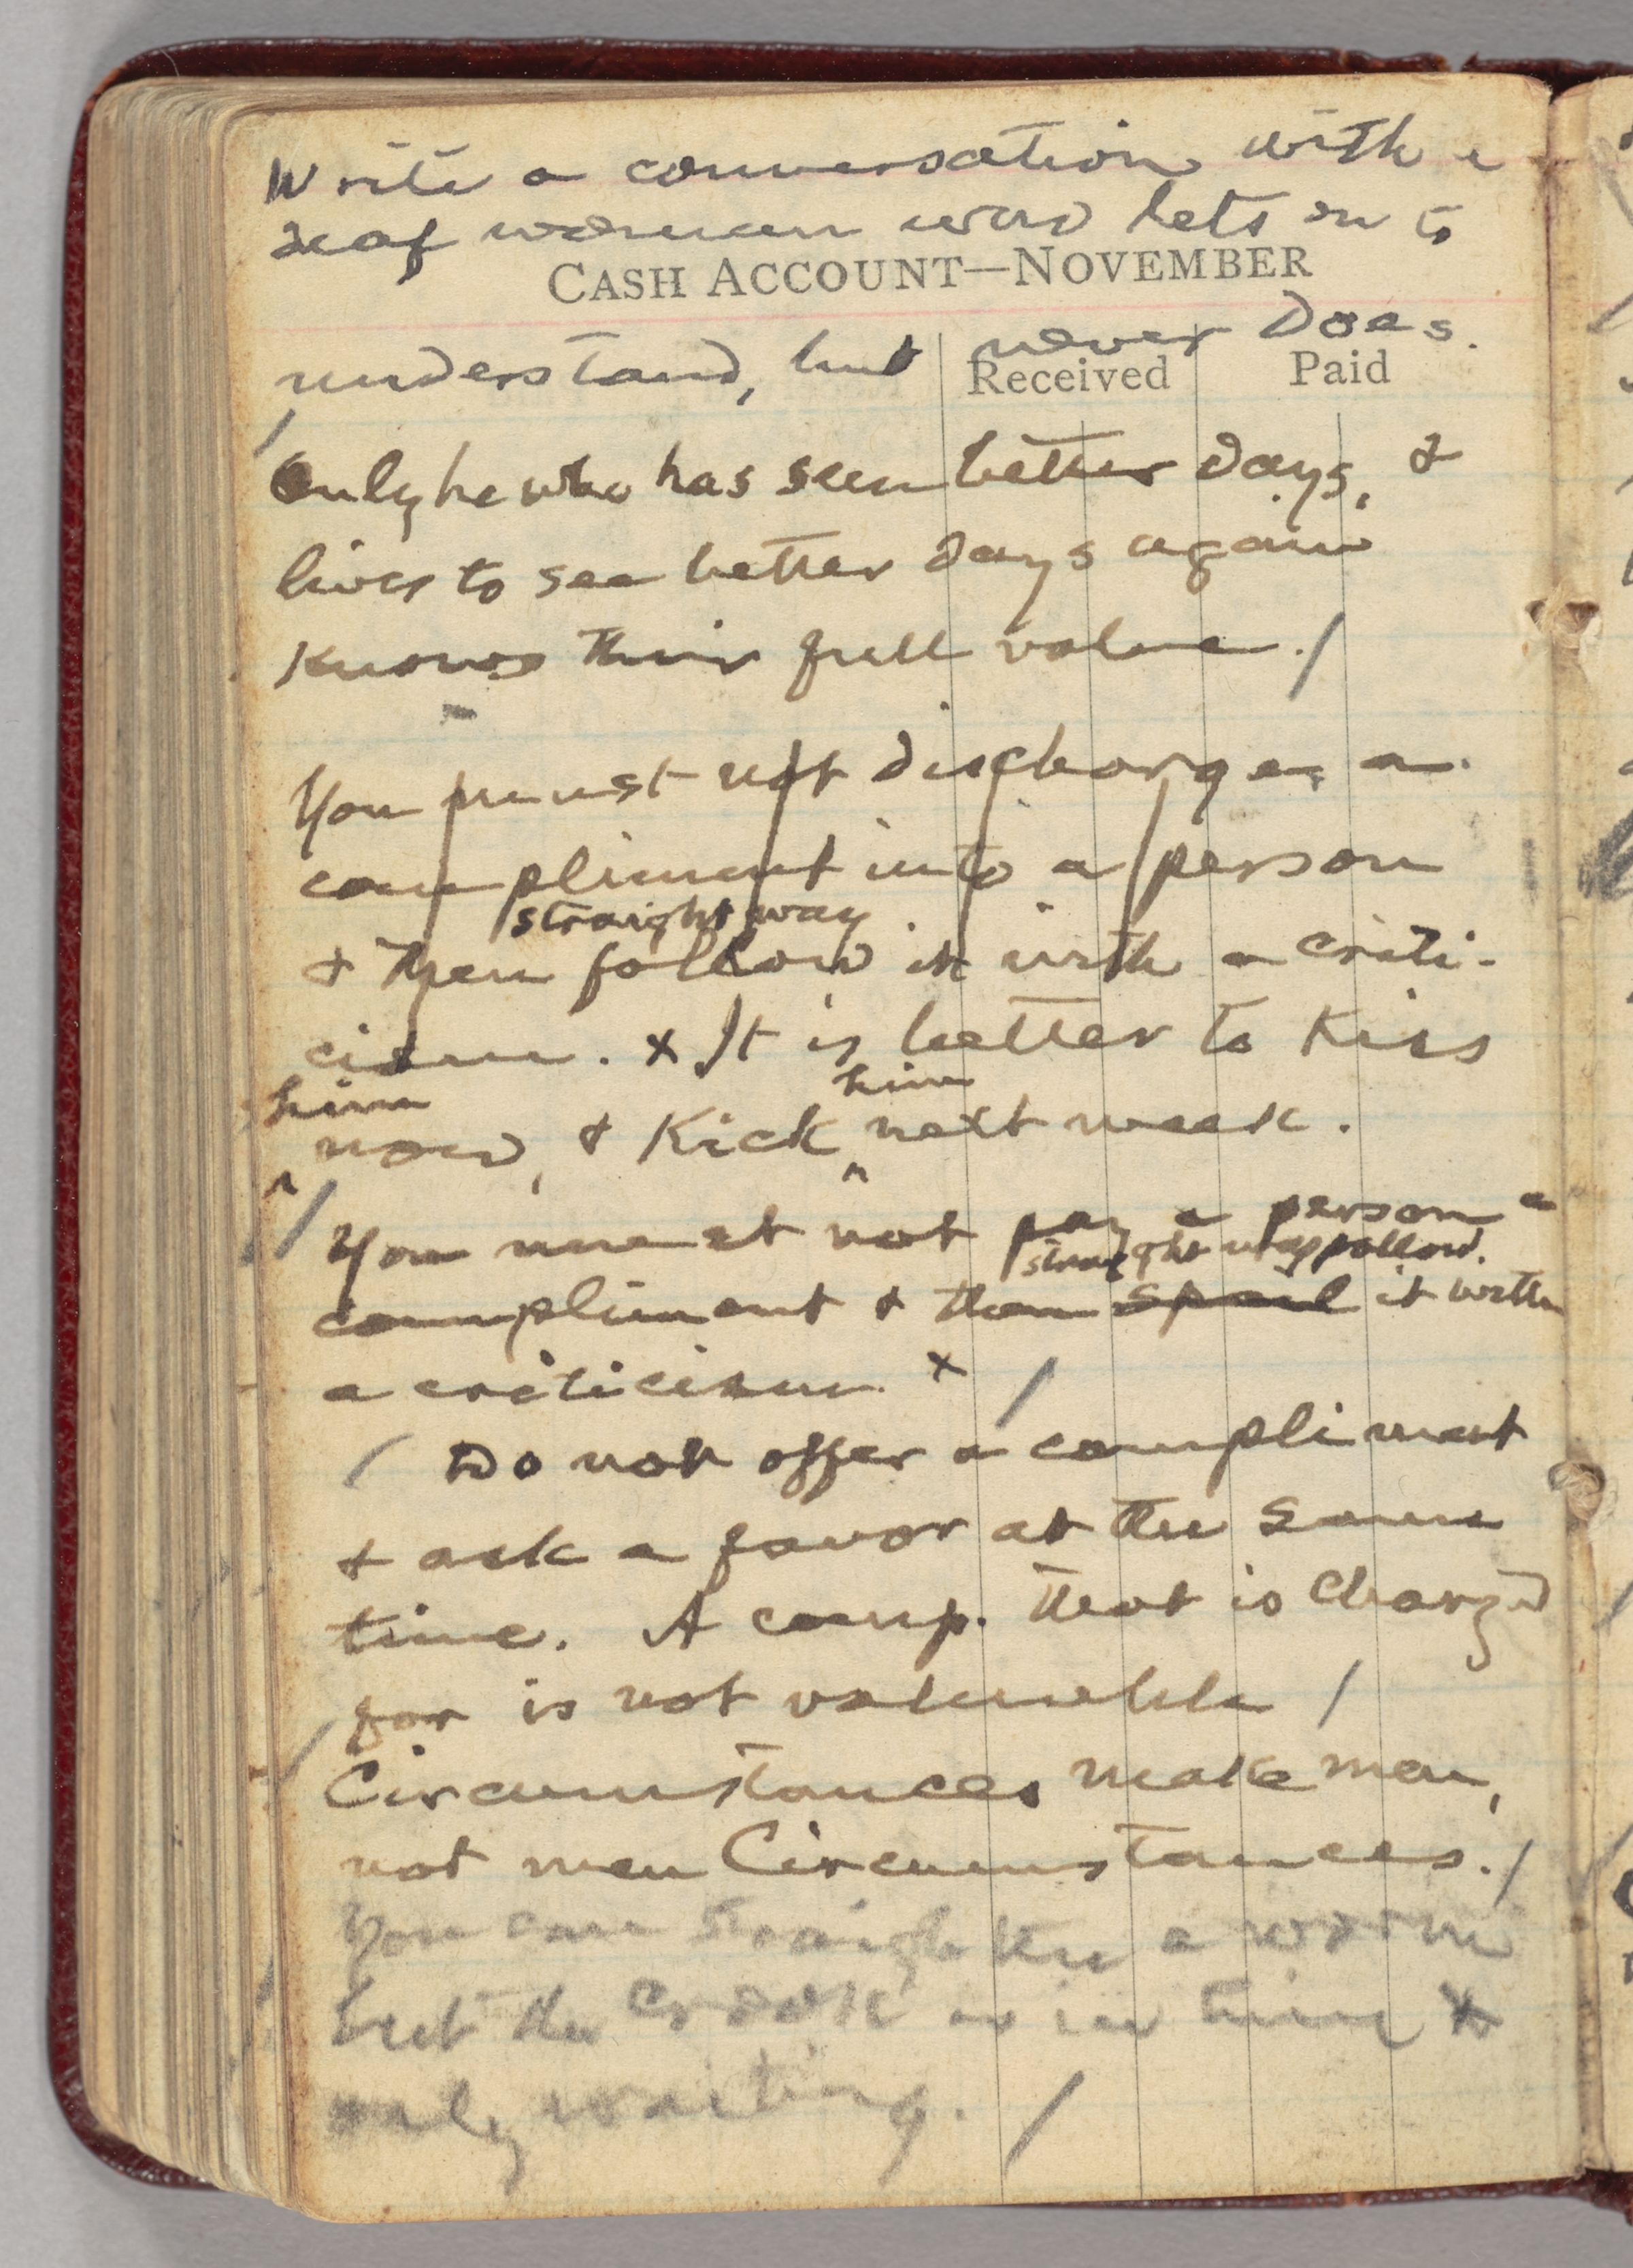 Write a conversation with a
deaf woman who lets on to
CASH ACCOUNT—NOVEMBER
understand, but never does.
Received Paid
Only he who has seen better days, &
lives to see better days again
knows their full value. /
You must not discharge a
compliment into a person
straightway
& then follow it with a criti-
cism. x It is better to kiss
him him
now, & kick ^ next week.
^
You must not pay a person a
straightway follow
compliment & then spoil it with
a criticism. x /
/ Do not offer a compliment
& ask a favor at the same
time. A comp. that is charged
for is not valuable /
Circumstances make men,
not men Circumstances. /
You can straighten a worm
but the crook is in him &
only waiting. /